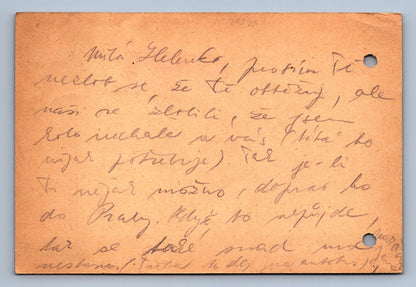 milá Helenko, prosím Tě
nezlob se, že Tě obtěžuji, ale
naši se zlobili, že jsem
kolo nechala u vás (táta ho
nějak potřebuje). Tak je-li
Ti nějak možno, doprav ho
do Prahy. Když to nepůjde,
tak se snad nic
nestane. (Táta to dej na